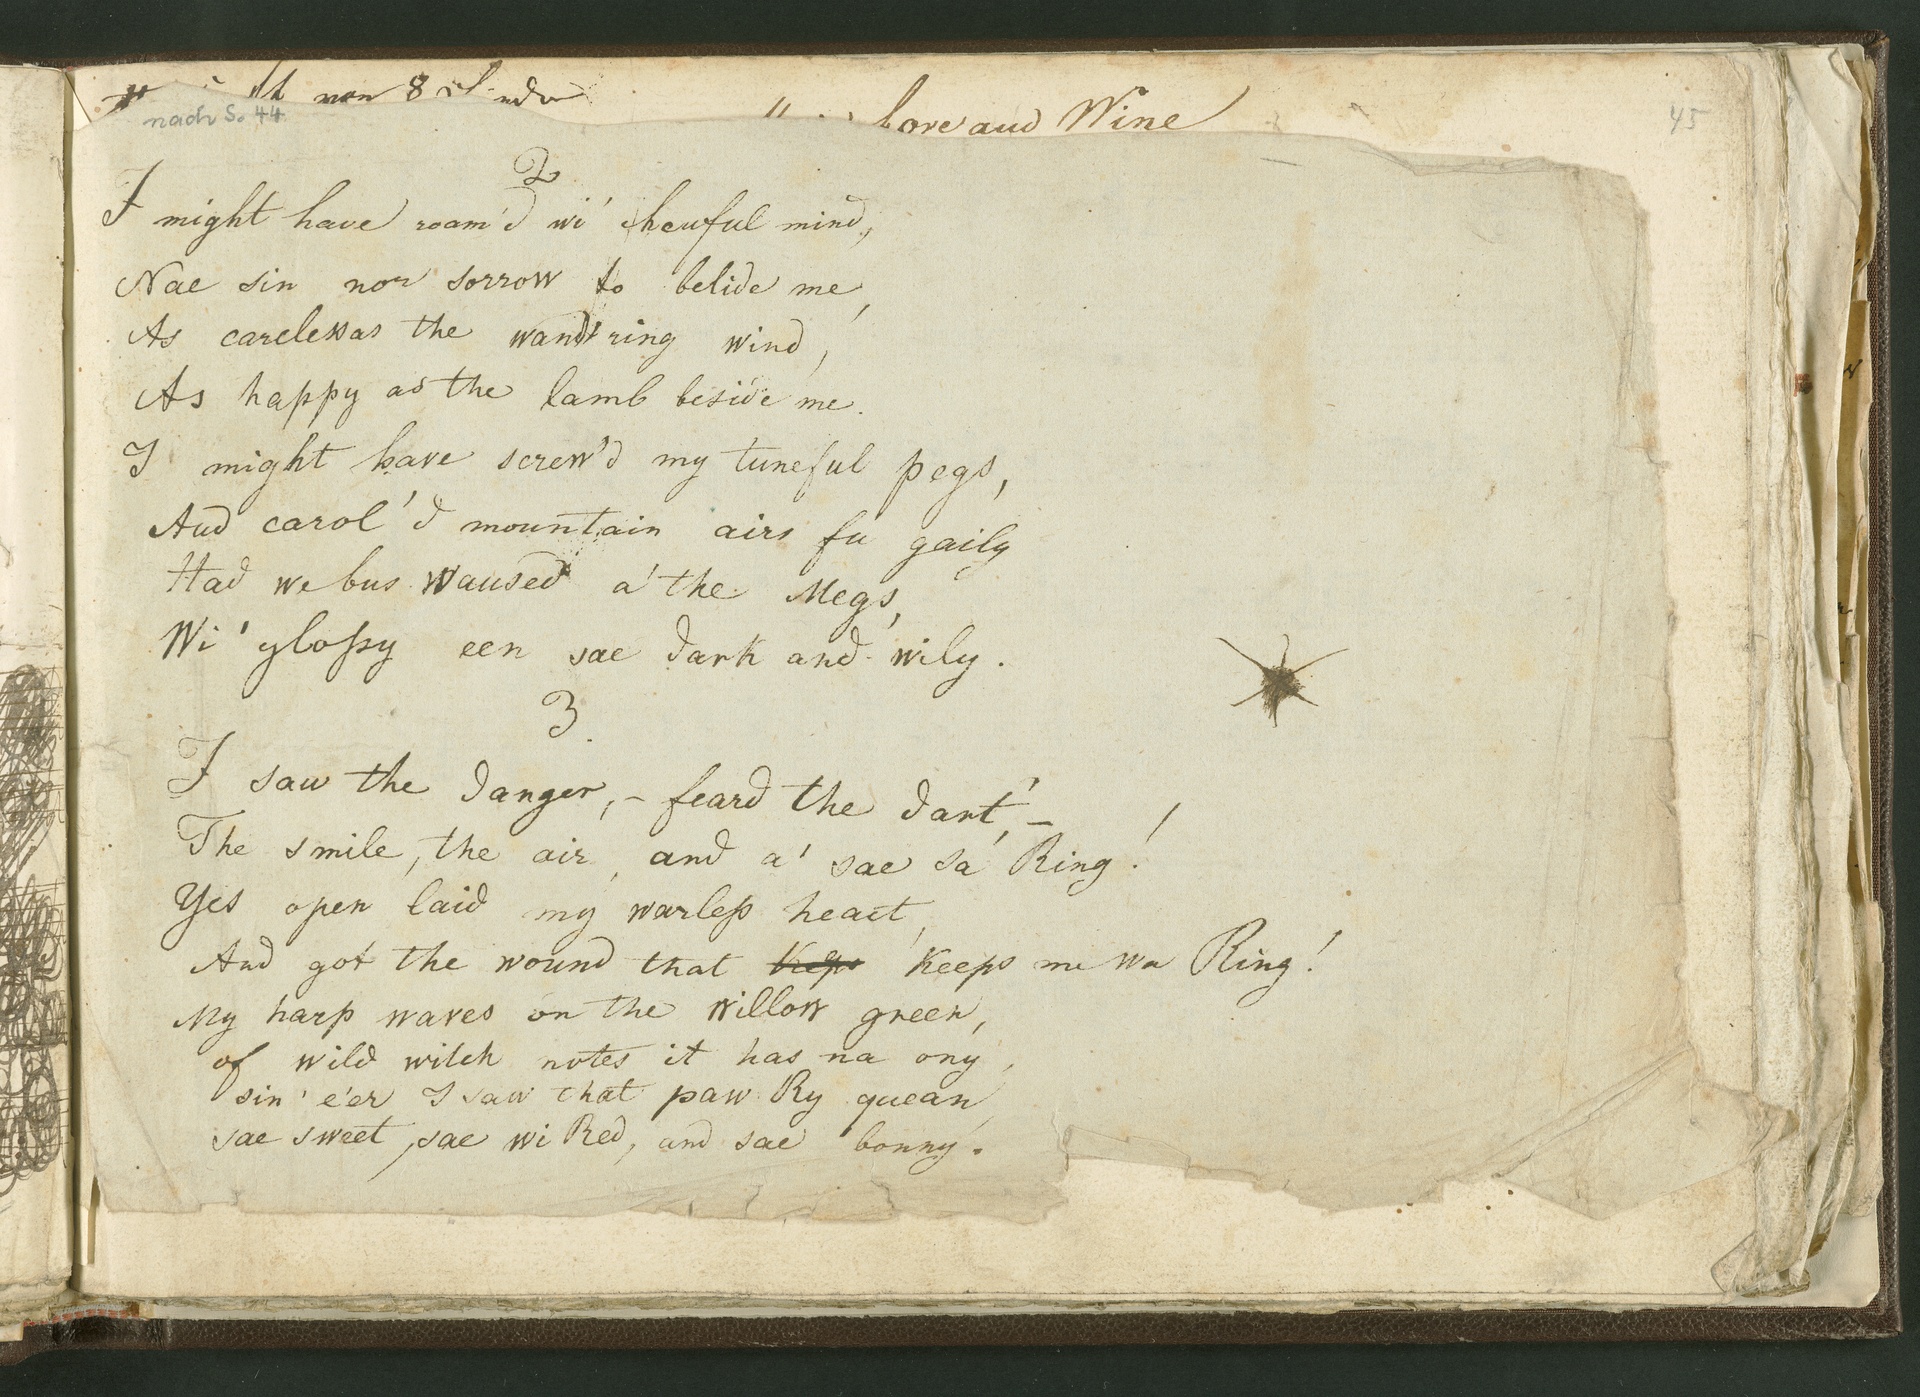 von 8
nach S. 44
love and Wine
45
2
I might have roam'd wi' cheufful mind,
Nae sin nor sorrow to belide me,
As careless as the wand'ring wind,
As happy as the lamb beside me.
I might have screw'd my tuneful pegs,
And carol'd mountain airs fu gaily
Had we bus waused a' the Megs,
Wi' glossy een sae dark and wily.
3.
I saw the danger, – feard the dart', –
The smile, the air, and a' sae sa' Ring!!
Yes open laid my warless heart,
And got the wound that Keeps Keeps me wa Ring!
My harp waves on the willow green,
of wild witch notes it has na ony,
sin' e'er I saw that paw Ky quean,
sae sweet, sae wi Ked, and sae bonny.